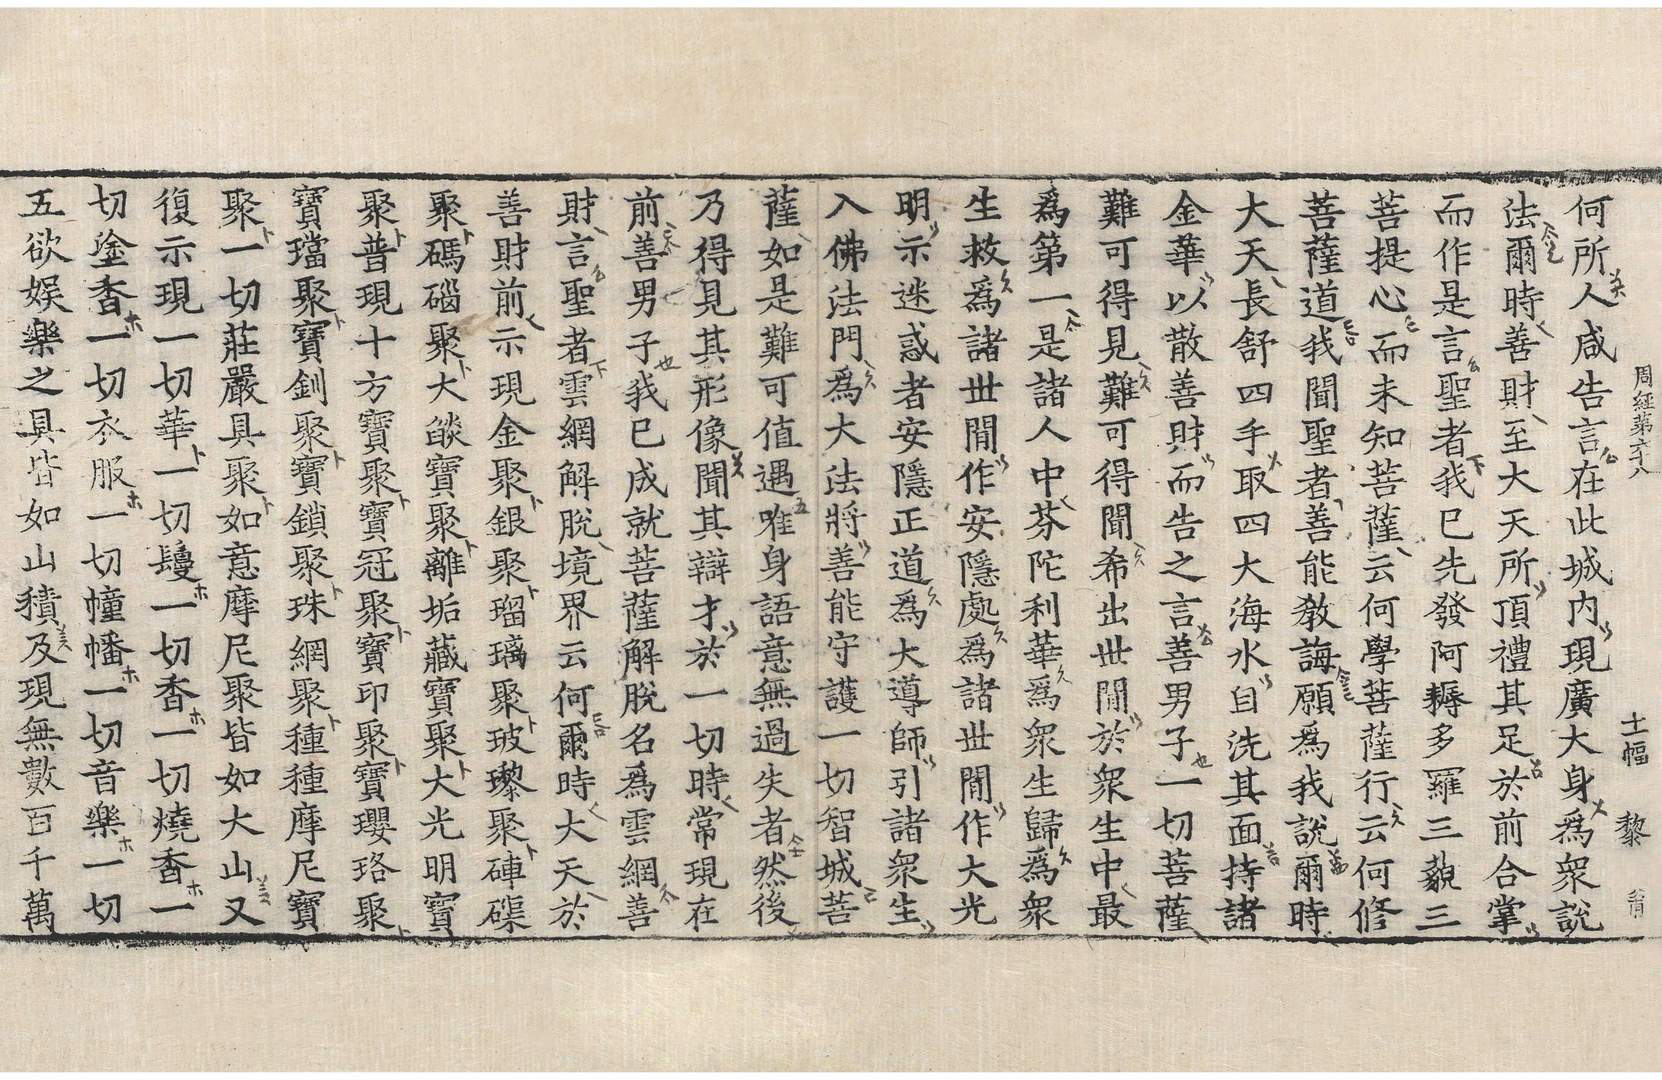 周經第六十八　十二幅　黎
何所人咸告言在此城内現廣大身爲衆說
法爾時善財至大天所頂禮其足於前合掌
而作是言聖者我已先發阿耨多羅三藐三
菩提心而未知菩薩云何學菩薩行云何修
菩薩道我聞聖者善能教誨願爲我說爾時
大天長舒四手取四大海水自洗其面持諸
金華以散善財而告之言善男子一切菩薩
難可得見難可得聞希出世間於衆生中最
爲第一是諸人中芬陀利華爲衆生歸爲衆
生救爲諸世間作安隱處爲諸世間作大光
明示迷惑者安隱正道爲大導師引諸衆生
入佛法門爲大法將善能守護一切智城菩
薩如是難可值遇唯身語意無過失者然後
乃得見其形像聞其辯才於一切時常現在
前善男子我已成就菩薩解脫名爲雲網善
財言聖者雲網解脫境界云何爾時大天於
善財前示現金聚銀聚瑠璃聚玻瓈聚硨磲
聚碼碯聚大燄寶聚離垢藏寶聚大光明寶
聚普現十方寶聚寶冠聚寶印聚寶瓔珞聚
寶璫聚寶釧聚寶鎖聚珠網聚種種摩尼寶
聚一切莊嚴具聚如意摩尼聚皆如大山又
復示現一切華一切鬘一切香一切燒香一
切塗香一切衣服一切幢幡一切音樂一切
五欲娛樂之具皆如山積及現無數百千萬